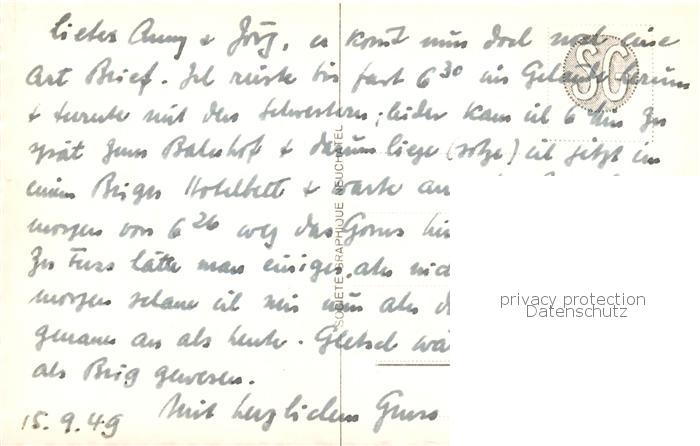 Lieber Anny + Jörg, es kommt nun doch noch eine
Art Brief. Ich reiste bis fast 6³⁰ im Gelände herum
+ turnte mit den Schwestern; leider kam ich 6 Min zu
spät zum Bahnhof + darum liege (sitze) ich jetzt in
einem Briger Hotelbett + warte au
morgen von 6²⁶ weg das Goms hi
Zu Fuss hätte man einiges, aber nic
morgen schaue ich mir nun aber d
genauer an als heute. Gletsch wä
als Brig gewesen.
15.9.49 Mit herzlichem Gruss
SOCIÉTÉ GRAPHIQUE NEUCHATEL
SG
privacy protection
Datenschutz